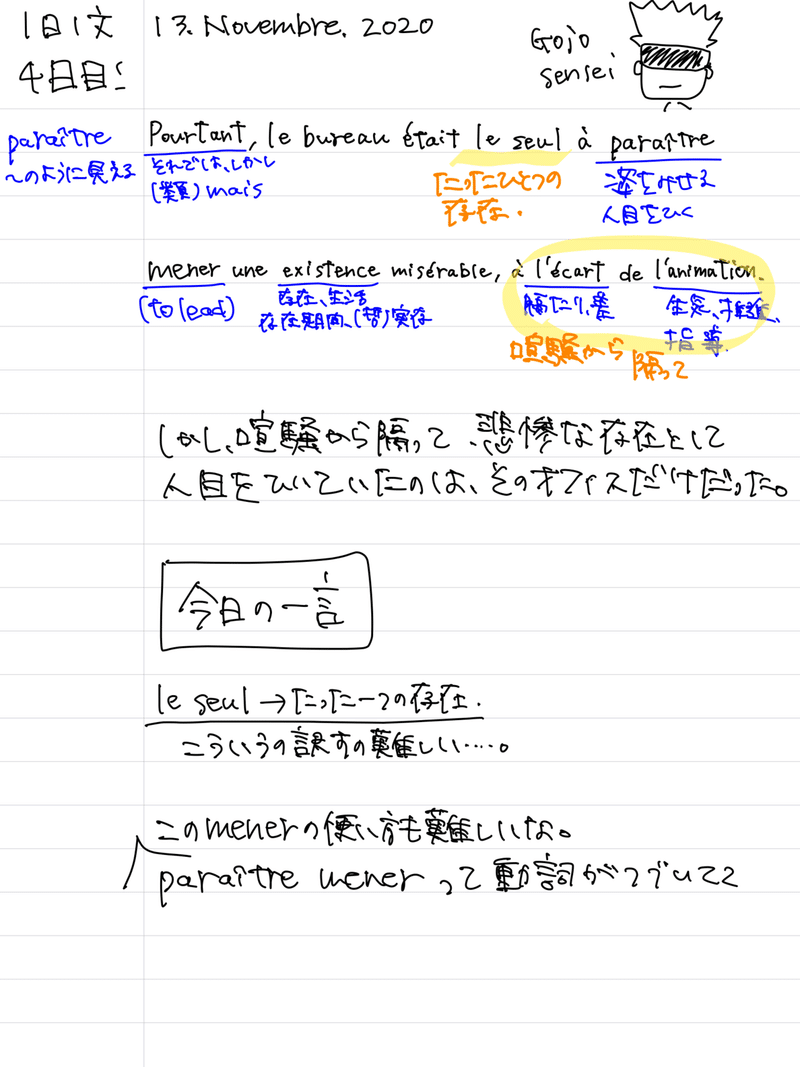 1日1文 13. Novembre. 2020
4日目!
Gojo
sensei
paraître
〜のように見える
Pourtant, le bureau était le seul à paraître
それでは、しかし
(類) mais
たったひとつの
存在.
姿をみせる
人目をひく
mener une existence misérable, à l'écart de l'animation.
(to lead)
存在、生活
存在期間、(哲)実存
隔たり、差
生気、
指導.
喧騒から 隔って
しかし、喧騒から隔って、悲惨な存在として
人目をひいていたのは、そのオフィスだけだった。
今日の一言
le seul → たった一つの存在.
こういうの訳すの難しい・・・・。
このmenerの使い方も難しいな。
paraître menerって動詞がつづいてて